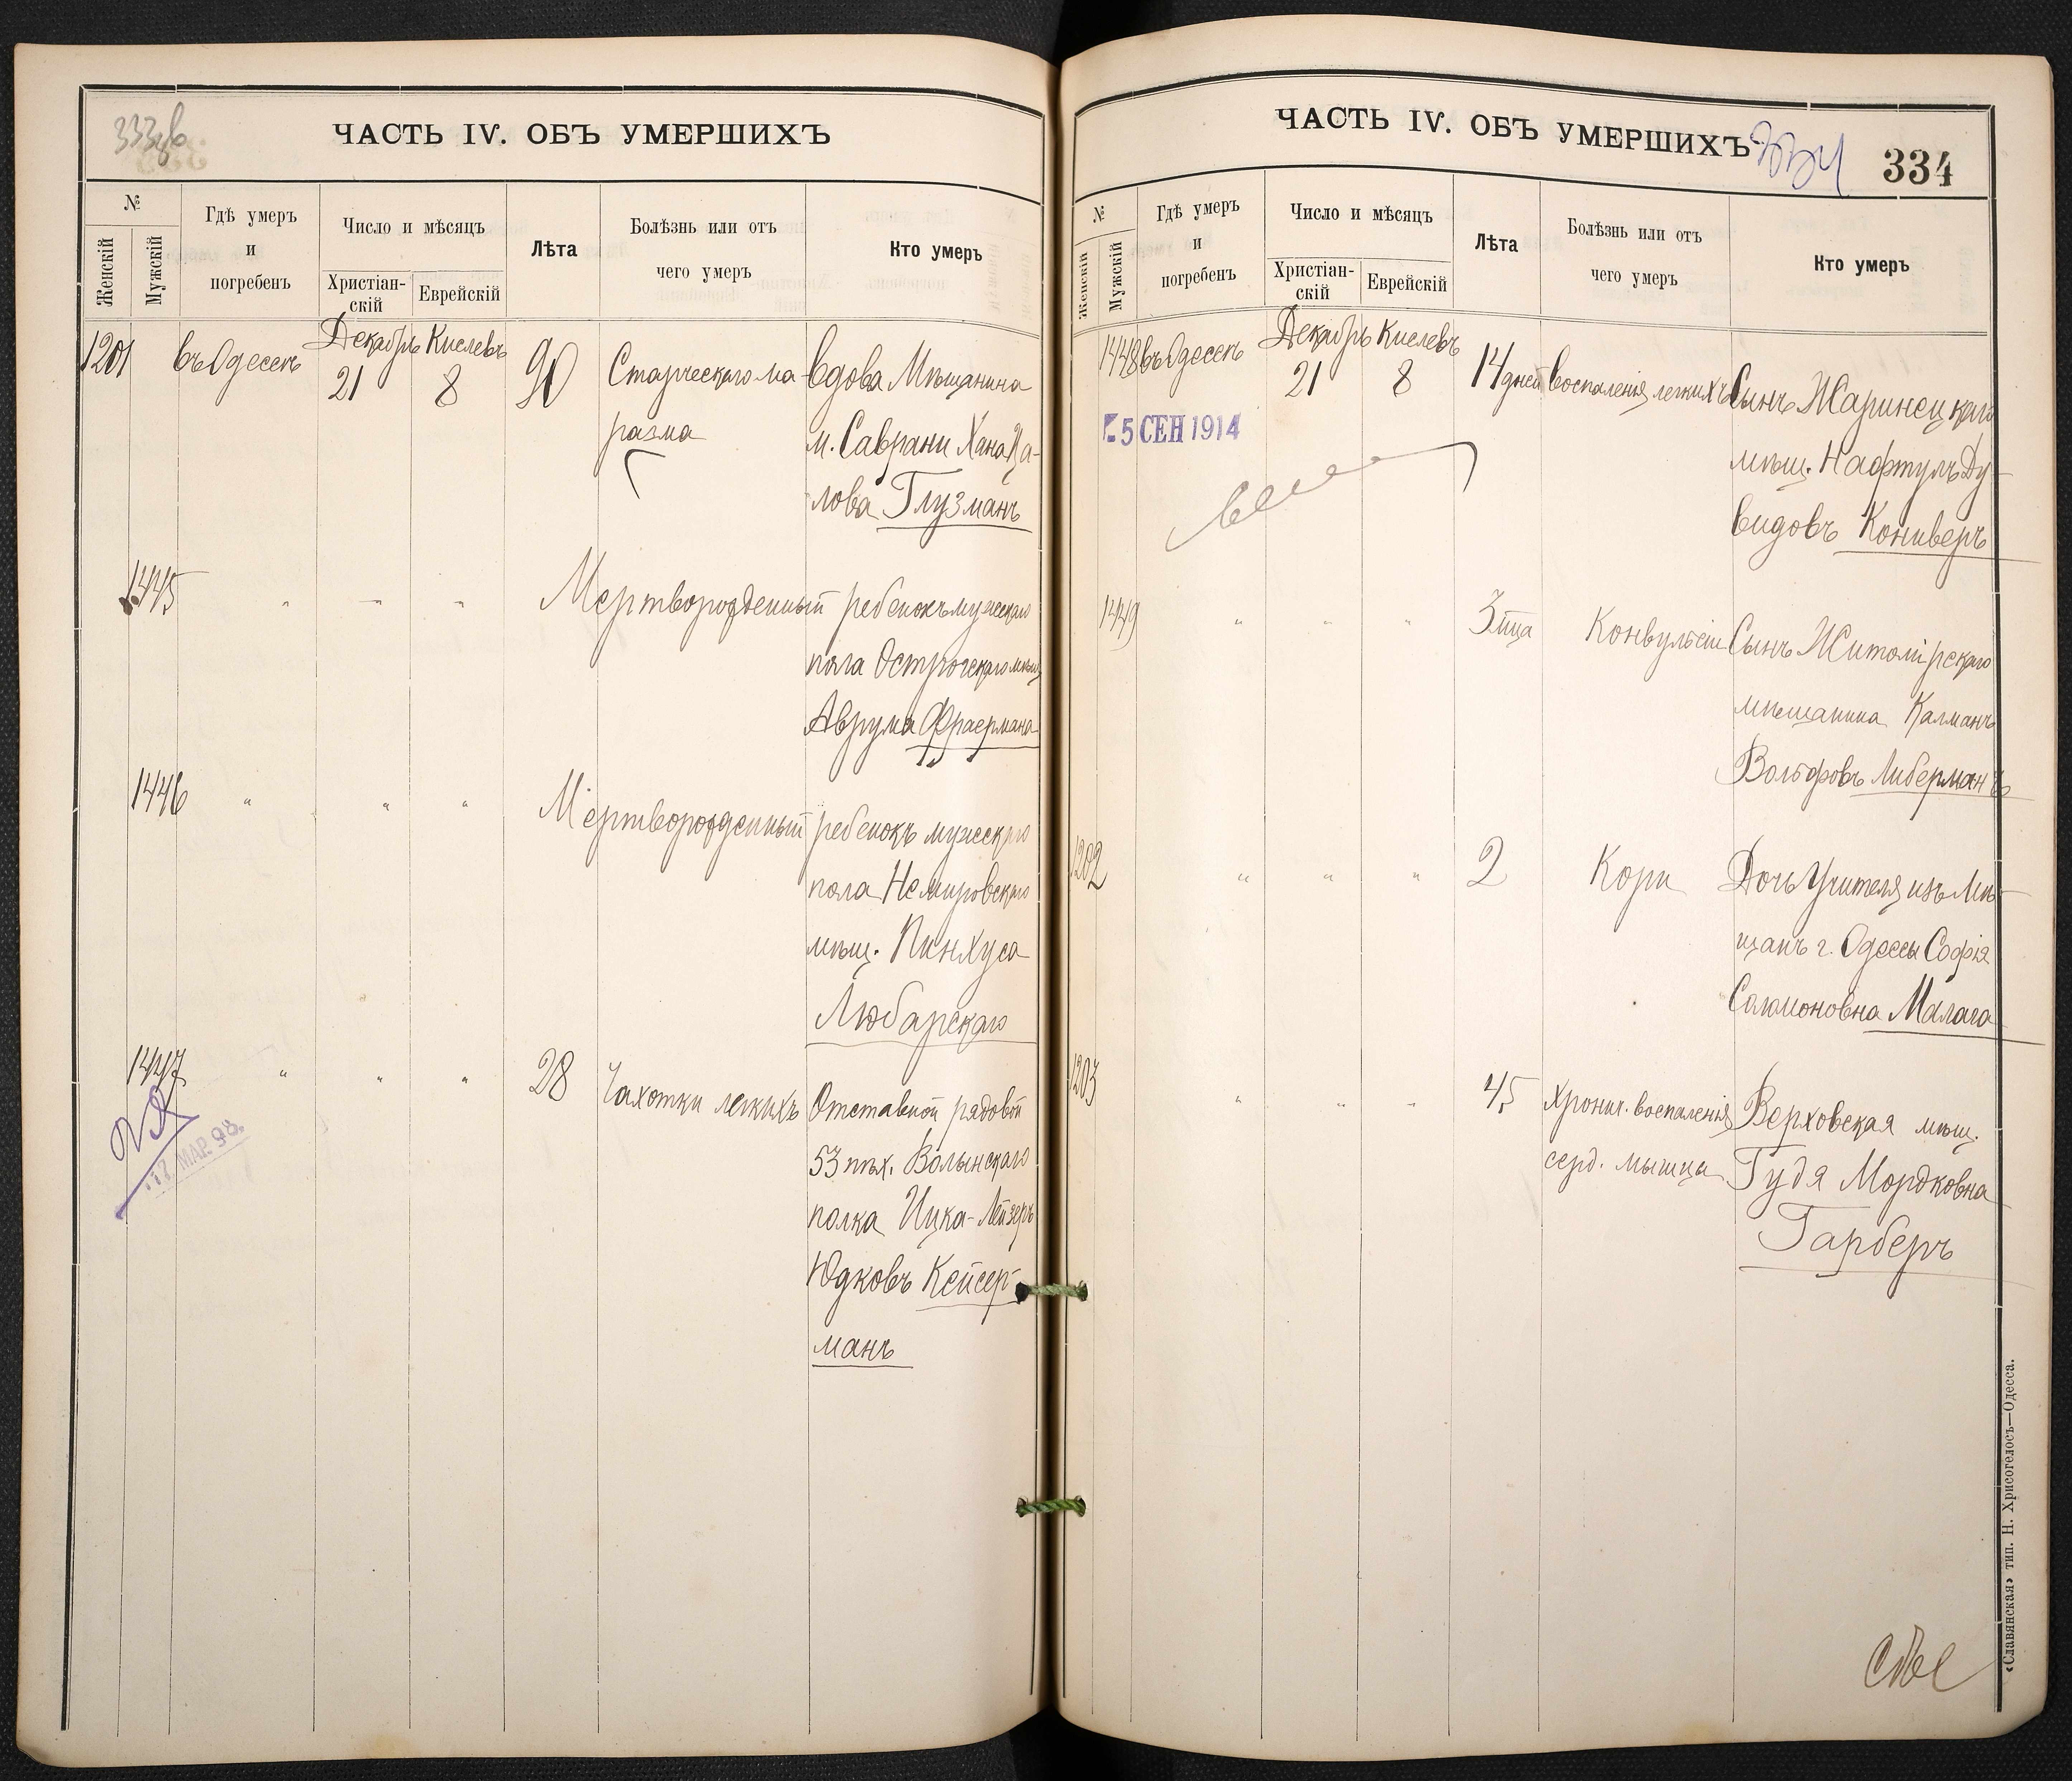 333об
ЧАСТЬ IV. ОБЪ УМЕРШИХЪ
№
Женскій
Мужскій
Гдѣ умеръ
и
погребенъ
Число и мѣсяцъ
Христіан-
скій
Еврейскій
Лѣта
Болѣзнь или отъ
чего умеръ
Кто умеръ
1201 въ Одессѣ Декабрь 21 Кислевъ 8 90 Старческаго ма- Вдова Мѣщанина
разма м. Саврани Хана Ца-
лова Глузманъ
1445 " " " Мертворожденный ребенокъ мужскаго
пола Острожскаго мѣщ.
Аврума Фраермана
1446 " " " Мертворожденный ребенокъ мужскаго
пола Немировскаго
мѣщ. Пинхуса
Любарскаго
1447 " " " 28 Чахотки легкихъ Отставной рядовой
17 МАР. 98.
53 пѣх. Волынскаго
полка Ицка-Лейзеръ
Юдковъ Кейсер-
манъ
ЧАСТЬ IV. ОБЪ УМЕРШИХЪ
334
334
№
Женскій
Мужскій
Гдѣ умеръ
и
погребенъ
Число и мѣсяцъ
Христіан-
скій
Еврейскій
Лѣта
Болѣзнь или отъ
чего умеръ
Кто умеръ
1448 въ Одессѣ Декабрь 21 Кислевъ 8 14 дней Воспаленія легкихъ Сынъ Жаринецкаго
5 СЕН 1914
мѣщ. Нафтулъ Ду-
видовъ Конверъ
1449 " " " 3 м-ца Конвульсіи Сынъ Житомірскаго
мѣщанина Калманъ
Вольфовъ Либерманъ
1202 " " " 2 Кори Дочь Учителя изъ Мѣ-
щанъ г. Одессы Софія
Соломоновна Малага
1203 " " " 45 Хронич. воспаленія Верховская мѣщ.
серд. мышца Гудя Мордковна
Гарберъ
«Славянская» тип. Н. Хрисогелосъ—Одесса.